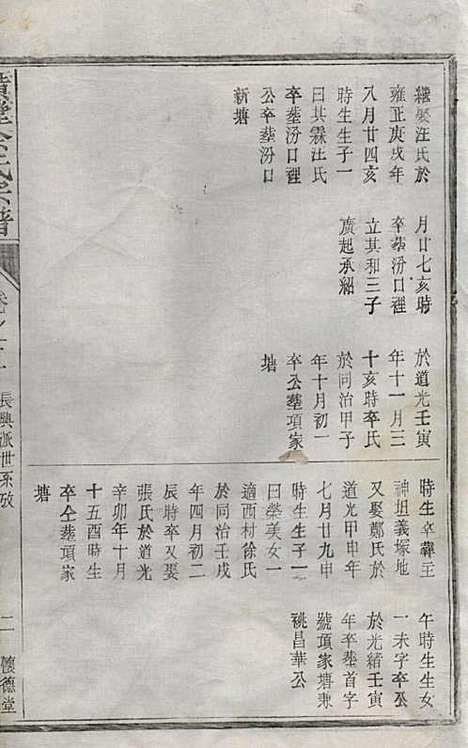 繼娶汪氏於
雍正庚戌年
八月廿四亥
時生生子一
曰其霖汪氏
卒塟汾口裡
公卒塟汾口
新塘
月廿七亥時
卒塟汾口裡
立其和三子
廣起承紹
於道光壬寅
年十一月三
十亥時卒氏
於同治甲子
年十月初一
卒公塟項家
塘
時生卒塟王
神坦義塚地
又娶鄭氏於
道光甲申年
七月廿九申
時生生子一
曰榮美女一
適西村徐氏
於同治壬戌
年四月初二
辰時卒又娶
張氏於道光
辛卯年十月
十五酉時生
卒仝塟項家
塘
午時生生女
一未字卒公
於光緒壬寅
年卒塟首字
號項家塘兼
祧昌華公
氏宗譜
卷之
長興派世系攷
二
懷德堂